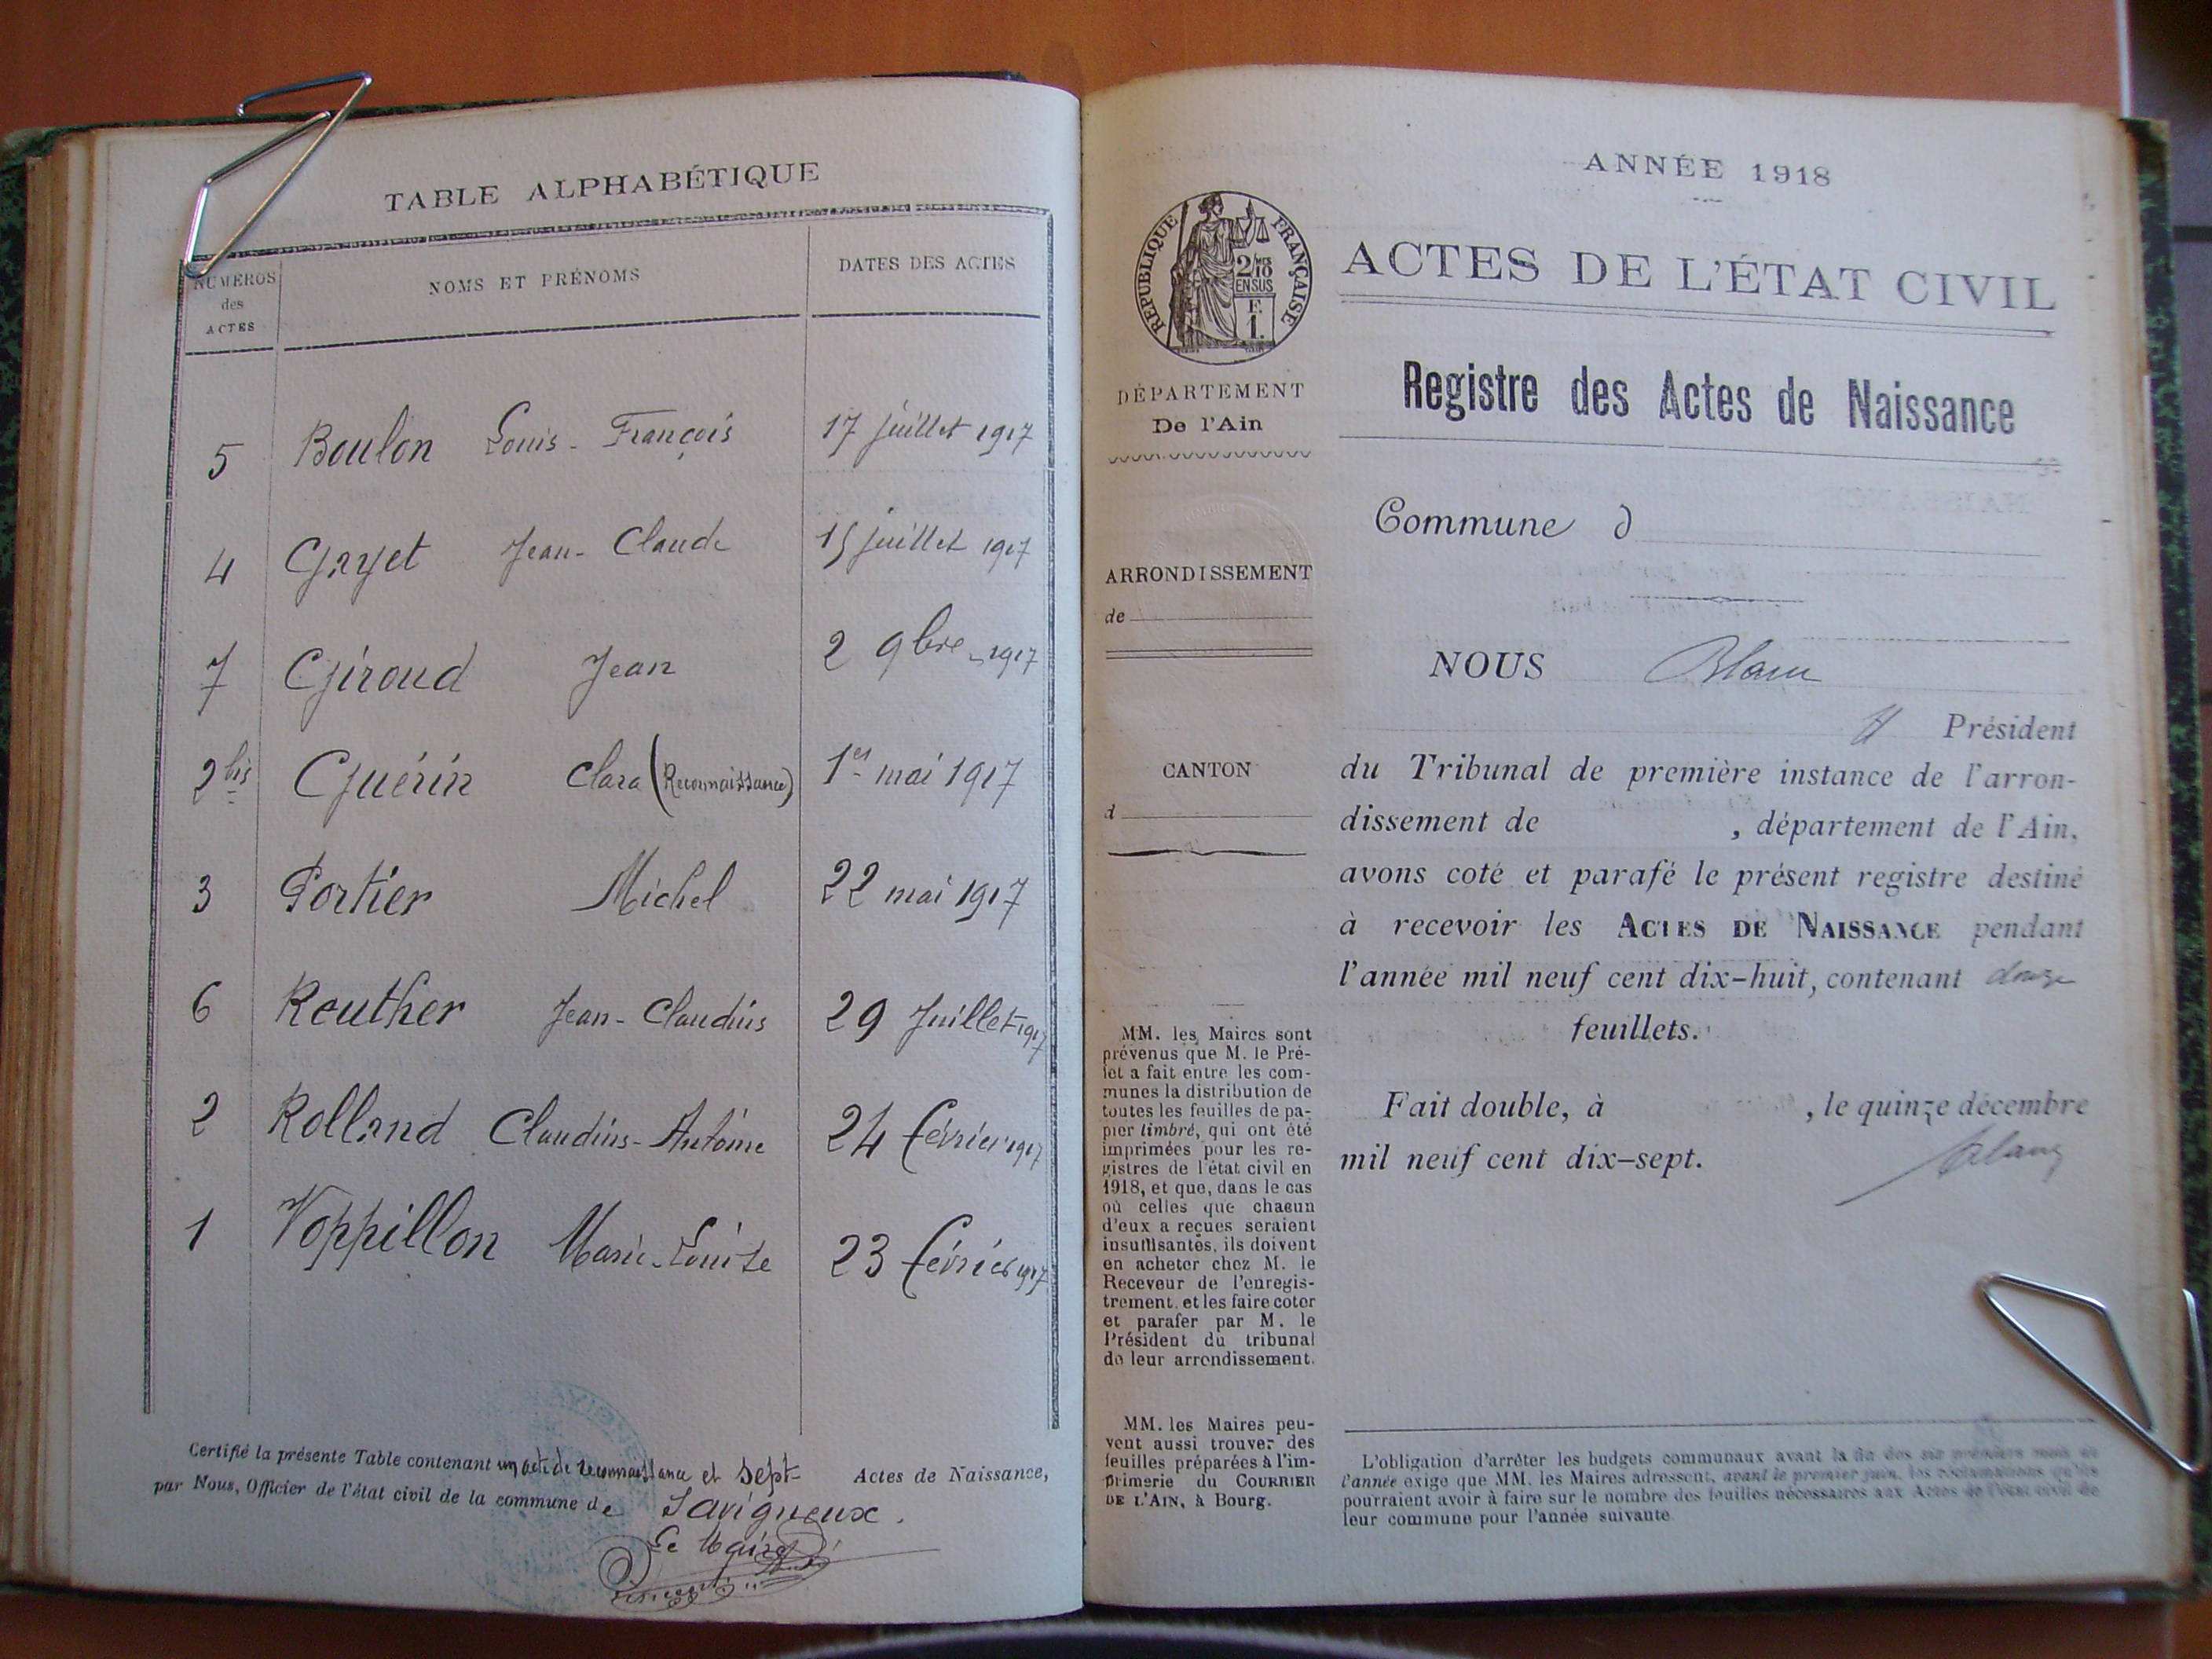 TABLE ALPHABÉTIQUE
NUMÉROS des ACTES
NOMS ET PRÉNOMS
DATES DES ACTES
5 Boulon Louis-François 17 juillet 1917
4 Gayet Jean-Claude 15 juillet 1917
7 Giroud Jean 2 9bre 1917
2bis Guérin Clara (Reconnaissance) 1er mai 1917
3 Portier Michel 22 mai 1917
6 Reuther Jean-Claudius 29 Juillet 1917
2 Rolland Claudius-Antoine 24 février 1917
1 Voppillon Marie-Louise 23 février 1917
Certifié la présente Table contenant un acte de reconnaissance et sept Actes de Naissance,
par Nous, Officier de l'état civil de la commune de Savigneux.
Le Maire
ANNÉE 1918
RÉPUBLIQUE FRANÇAISE
2/10 EN SUS
F. 1.
ACTES DE L'ÉTAT CIVIL
DÉPARTEMENT
De l'Ain
Registre des Actes de Naissance
Commune d
ARRONDISSEMENT
de
CANTON
d
NOUS
Président
du Tribunal de première instance de l'arron-
dissement de , département de l'Ain,
avons coté et parafé le présent registre destiné
à recevoir les ACTES DE NAISSANCE pendant
l'année mil neuf cent dix-huit, contenant douze
feuillets.
Fait double, à , le quinze décembre
mil neuf cent dix-sept.
MM. les Maires sont
prévenus que M. le Pré-
fet a fait entre les com-
munes la distribution de
toutes les feuilles de pa-
pier timbré, qui ont été
imprimées pour les re-
gistres de l'état civil en
1918, et que, dans le cas
où celles que chacun
d'eux a reçues seraient
insuffisantes, ils doivent
en acheter chez M. le
Receveur de l'enregis-
trement, et les faire coter
et parafer par M. le
Président du tribunal
de leur arrondissement.
MM. les Maires peu-
vent aussi trouver des
feuilles préparées à l'im-
primerie du COURRIER
DE L'AIN, à Bourg.
L'obligation d'arrêter les budgets communaux avant la fin des six premiers mois de
l'année exige que MM. les Maires adressent, avant le premier juin, les réclamations qu'ils
pourraient avoir à faire sur le nombre des feuilles nécessaires aux Actes de l'état civil de
leur commune pour l'année suivante